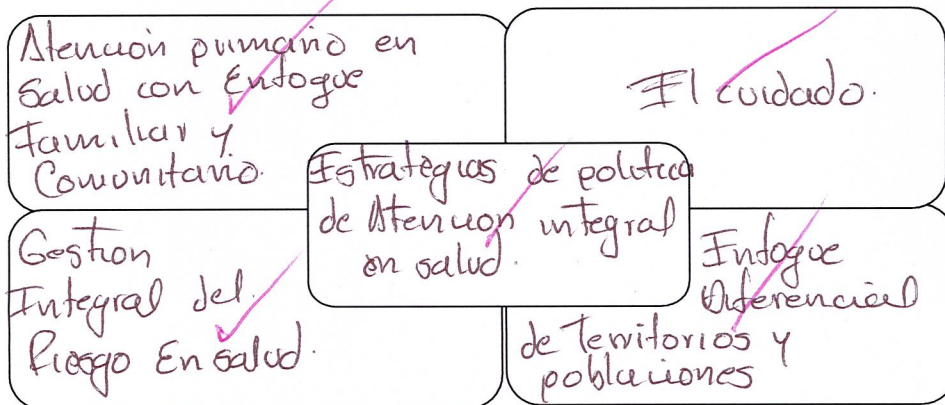 Atención primario en
Salud con Enfoque
Familiar y
Comunitario.
El cuidado.
Estrategias de politica
de Atencion integral
en salud.
Gestion
Integral del
Riesgo En salud.
Enfoque
Diferencial
de Territorios y
poblaciones